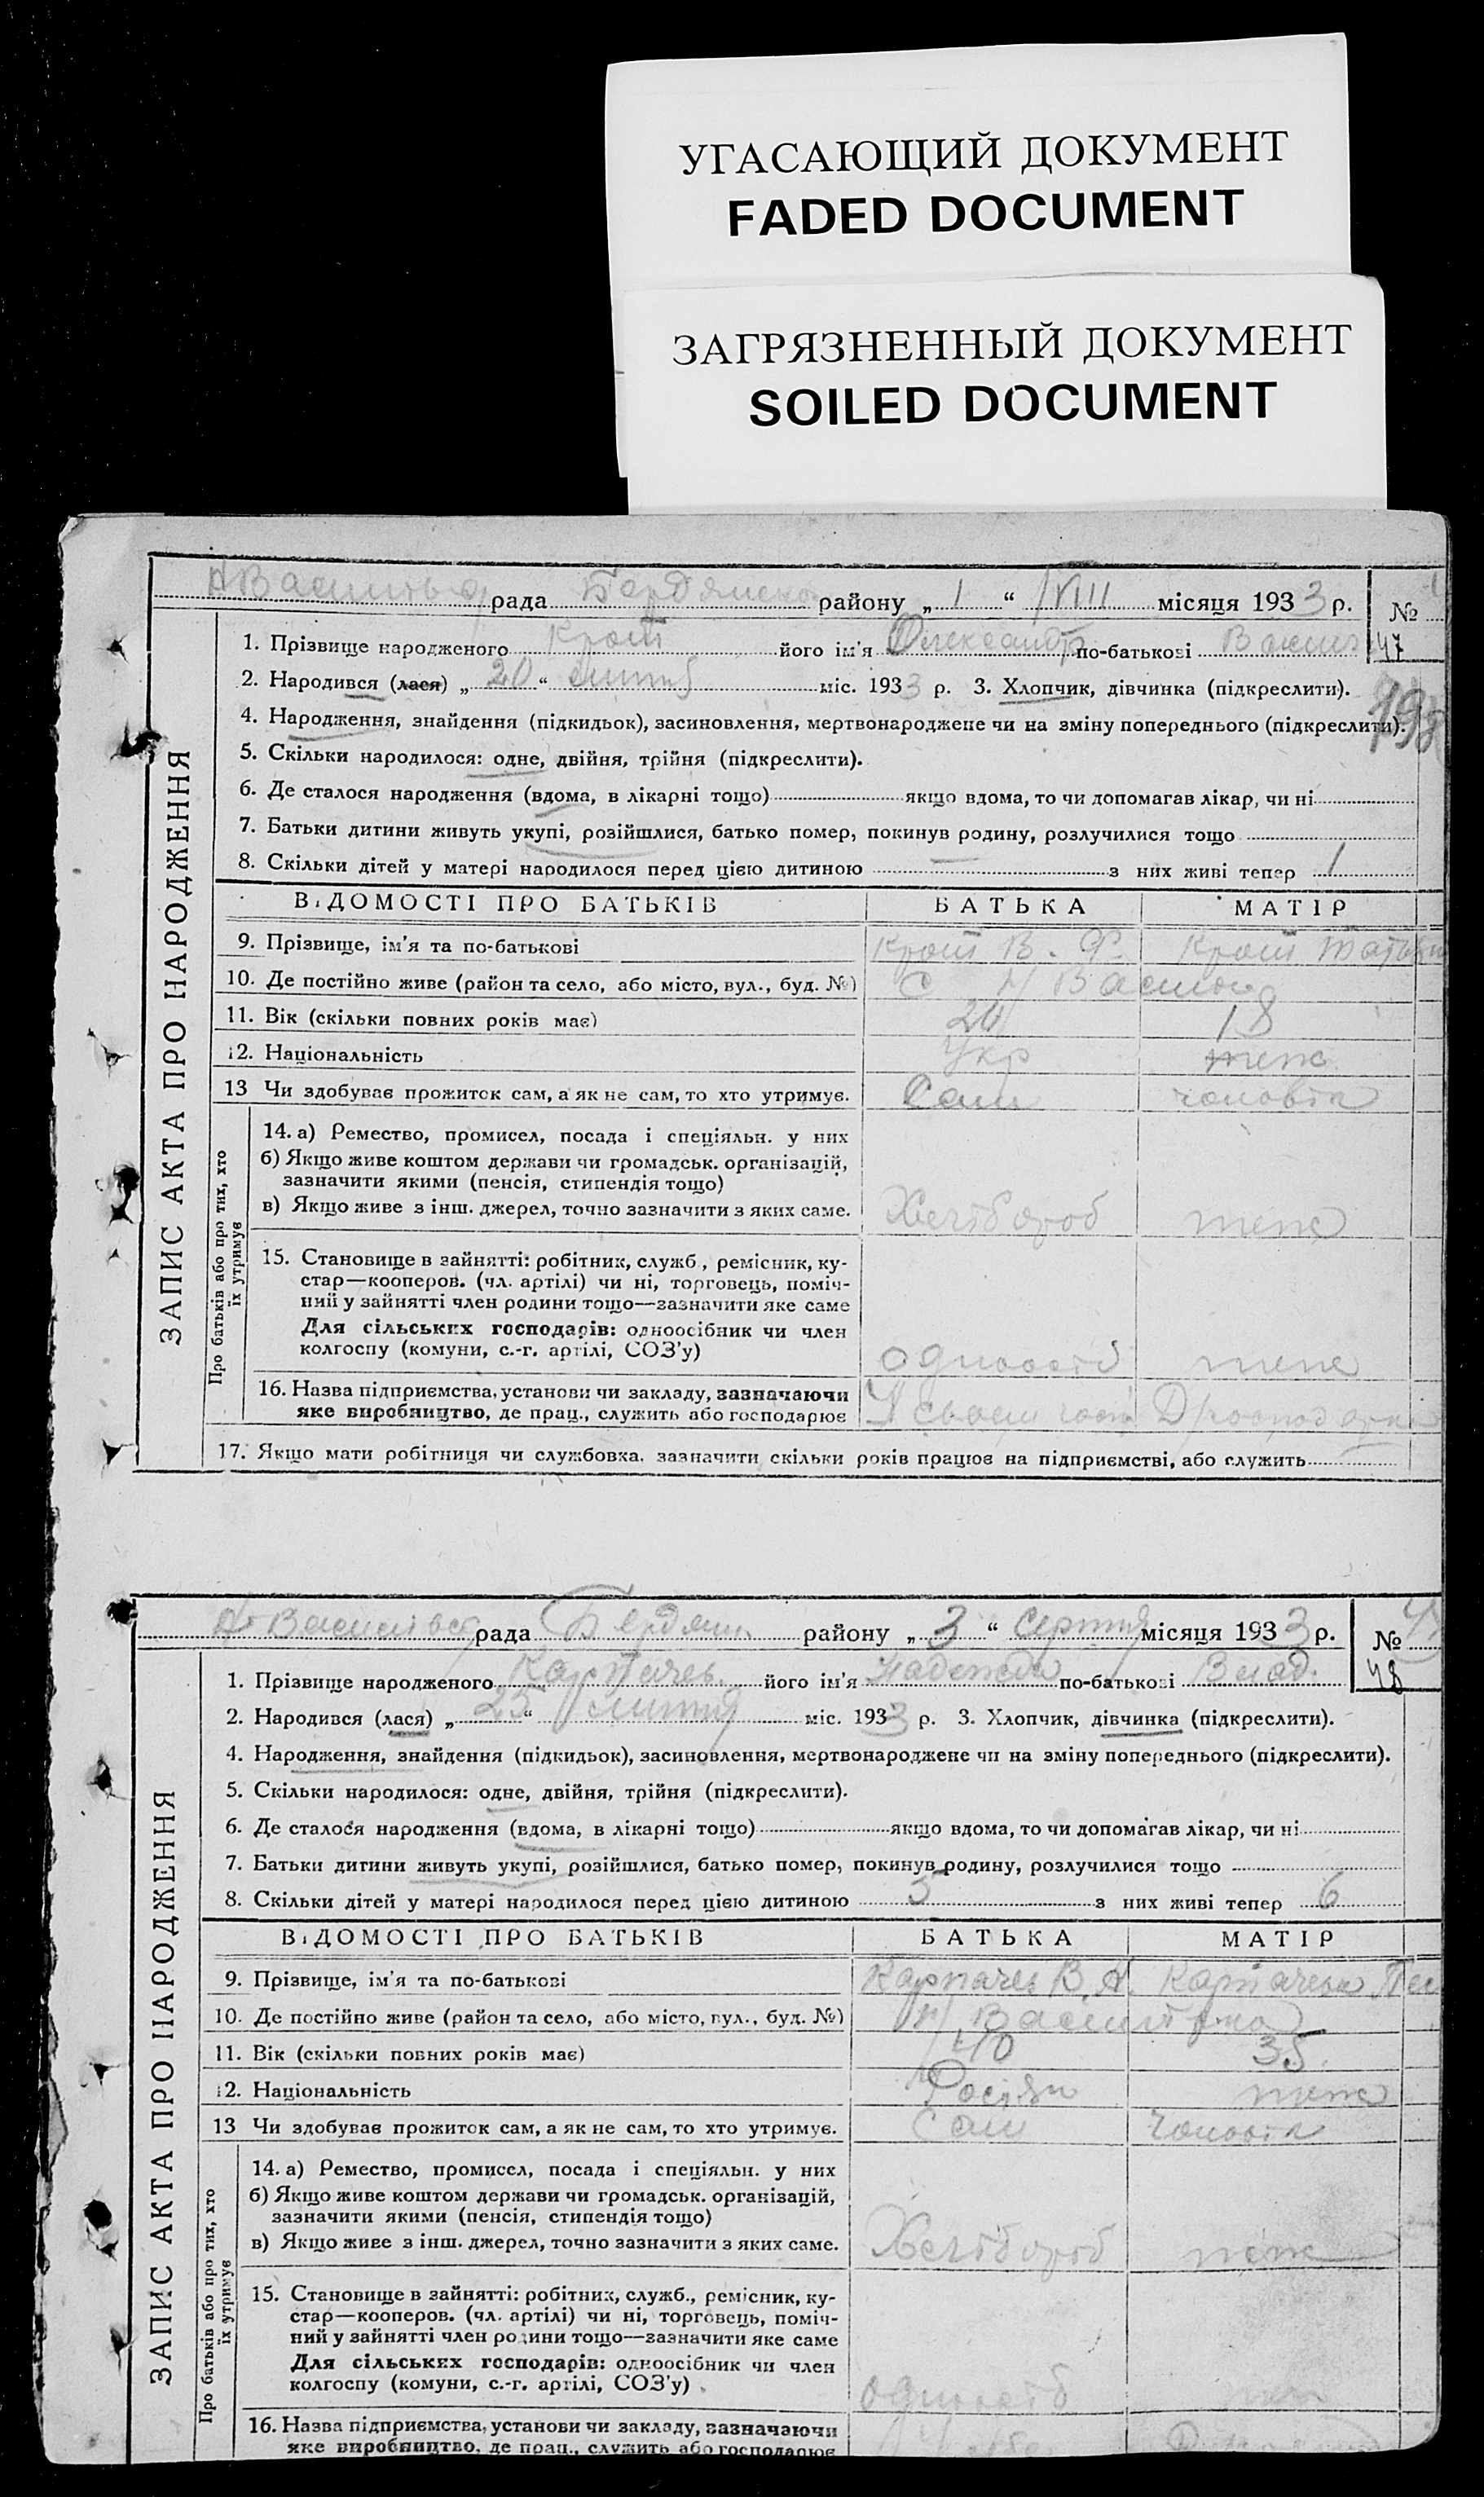 УГАСАЮЩИЙ ДОКУМЕНТ
FADED DOCUMENT
ЗАГРЯЗНЕННЫЙ ДОКУМЕНТ
SOILED DOCUMENT
рада району „ 1 “ VIII місяця 1933 р. №
1. Прізвище народженого Крот його ім'я Олександр по-батькові Васил 47
2. Народився (лася) „ 20 “ липня міс. 1933 р. 3. Хлопчик, дівчинка (підкреслити).
198
4. Народження, знайдення (підкидьок), засиновлення, мертвонароджене чи на зміну попереднього (підкреслити).
5. Скільки народилося: одне, двійня, трійня (підкреслити).
6. Де сталося народження (вдома, в лікарні тощо) якщо вдома, то чи допомагав лікар, чи ні
7. Батьки дитини живуть укупі, розійшлися, батько помер, покинув родину, розлучилися тощо
8. Скільки дітей у матері народилося перед цією дитиною — з них живі тепер 1
ВІДОМОСТІ ПРО БАТЬКІВ БАТЬКА МАТІР
9. Прізвище, ім'я та по-батькові Крот В. Ф. Крот
10. Де постійно живе (район та село, або місто, вул., буд. №) с
11. Вік (скільки повних років має) 18
12. Національність Укр теж
13 Чи здобуває прожиток сам, а як не сам, то хто утримує. Сам чоловік
ЗАПИС АКТА ПРО НАРОДЖЕННЯ
Про батьків або про тих, хто їх утримує
14. а) Ремество, промисел, посада і спеціяльн. у них
б) Якщо живе коштом держави чи громадськ. організацій,
зазначити якими (пенсія, стипендія тощо)
в) Якщо живе з інш. джерел, точно зазначити з яких саме. Хлібороб теж
15. Становище в зайнятті: робітник, служб., ремісник, ку-
стар—кооперов. (чл. артілі) чи ні, торговець, поміч-
ний у зайнятті член родини тощо—зазначити яке саме
Для сільських господарів: одноосібник чи член
колгоспу (комуни, с.-г. артілі, СОЗ'у) одноосіб теж
16. Назва підприємства, установи чи закладу, зазначаючи
яке виробництво, де прац., служить або господарює
17. Якщо мати робітниця чи службовка, зазначити скільки років працює на підприємстві, або служить
рада Бердянс району „ 3 “ Серпня місяця 1933 р. №
1. Прізвище народженого Карпачев його ім'я Надежда по-батькові Влад. 48
2. Народився (лася) „ 25 “ липня міс. 1933 р. 3. Хлопчик, дівчинка (підкреслити).
4. Народження, знайдення (підкидьок), засиновлення, мертвонароджене чи на зміну попереднього (підкреслити).
5. Скільки народилося: одне, двійня, трійня (підкреслити).
6. Де сталося народження (вдома, в лікарні тощо) якщо вдома, то чи допомагав лікар, чи ні
7. Батьки дитини живуть укупі, розійшлися, батько помер, покинув родину, розлучилися тощо
8. Скільки дітей у матері народилося перед цією дитиною 5 з них живі тепер 6
ВІДОМОСТІ ПРО БАТЬКІВ БАТЬКА МАТІР
9. Прізвище, ім'я та по-батькові Карпачев В. А. Карпачева
10. Де постійно живе (район та село, або місто, вул., буд. №)
11. Вік (скільки повних років має) 40 35
12. Національність теж
13 Чи здобуває прожиток сам, а як не сам, то хто утримує. Сам Чоловік
ЗАПИС АКТА ПРО НАРОДЖЕННЯ
Про батьків або про тих, хто їх утримує
14. а) Ремество, промисел, посада і спеціяльн. у них
б) Якщо живе коштом держави чи громадськ. організацій,
зазначити якими (пенсія, стипендія тощо)
в) Якщо живе з інш. джерел, точно зазначити з яких саме. Хлібороб теж
15. Становище в зайнятті: робітник, служб., ремісник, ку-
стар—кооперов. (чл. артілі) чи ні, торговець, поміч-
ний у зайнятті член родини тощо—зазначити яке саме
Для сільських господарів: одноосібник чи член
колгоспу (комуни, с.-г. артілі, СОЗ'у) одноосіб
16. Назва підприємства, установи чи закладу, зазначаючи
яке виробництво, де прац., служить або господарює